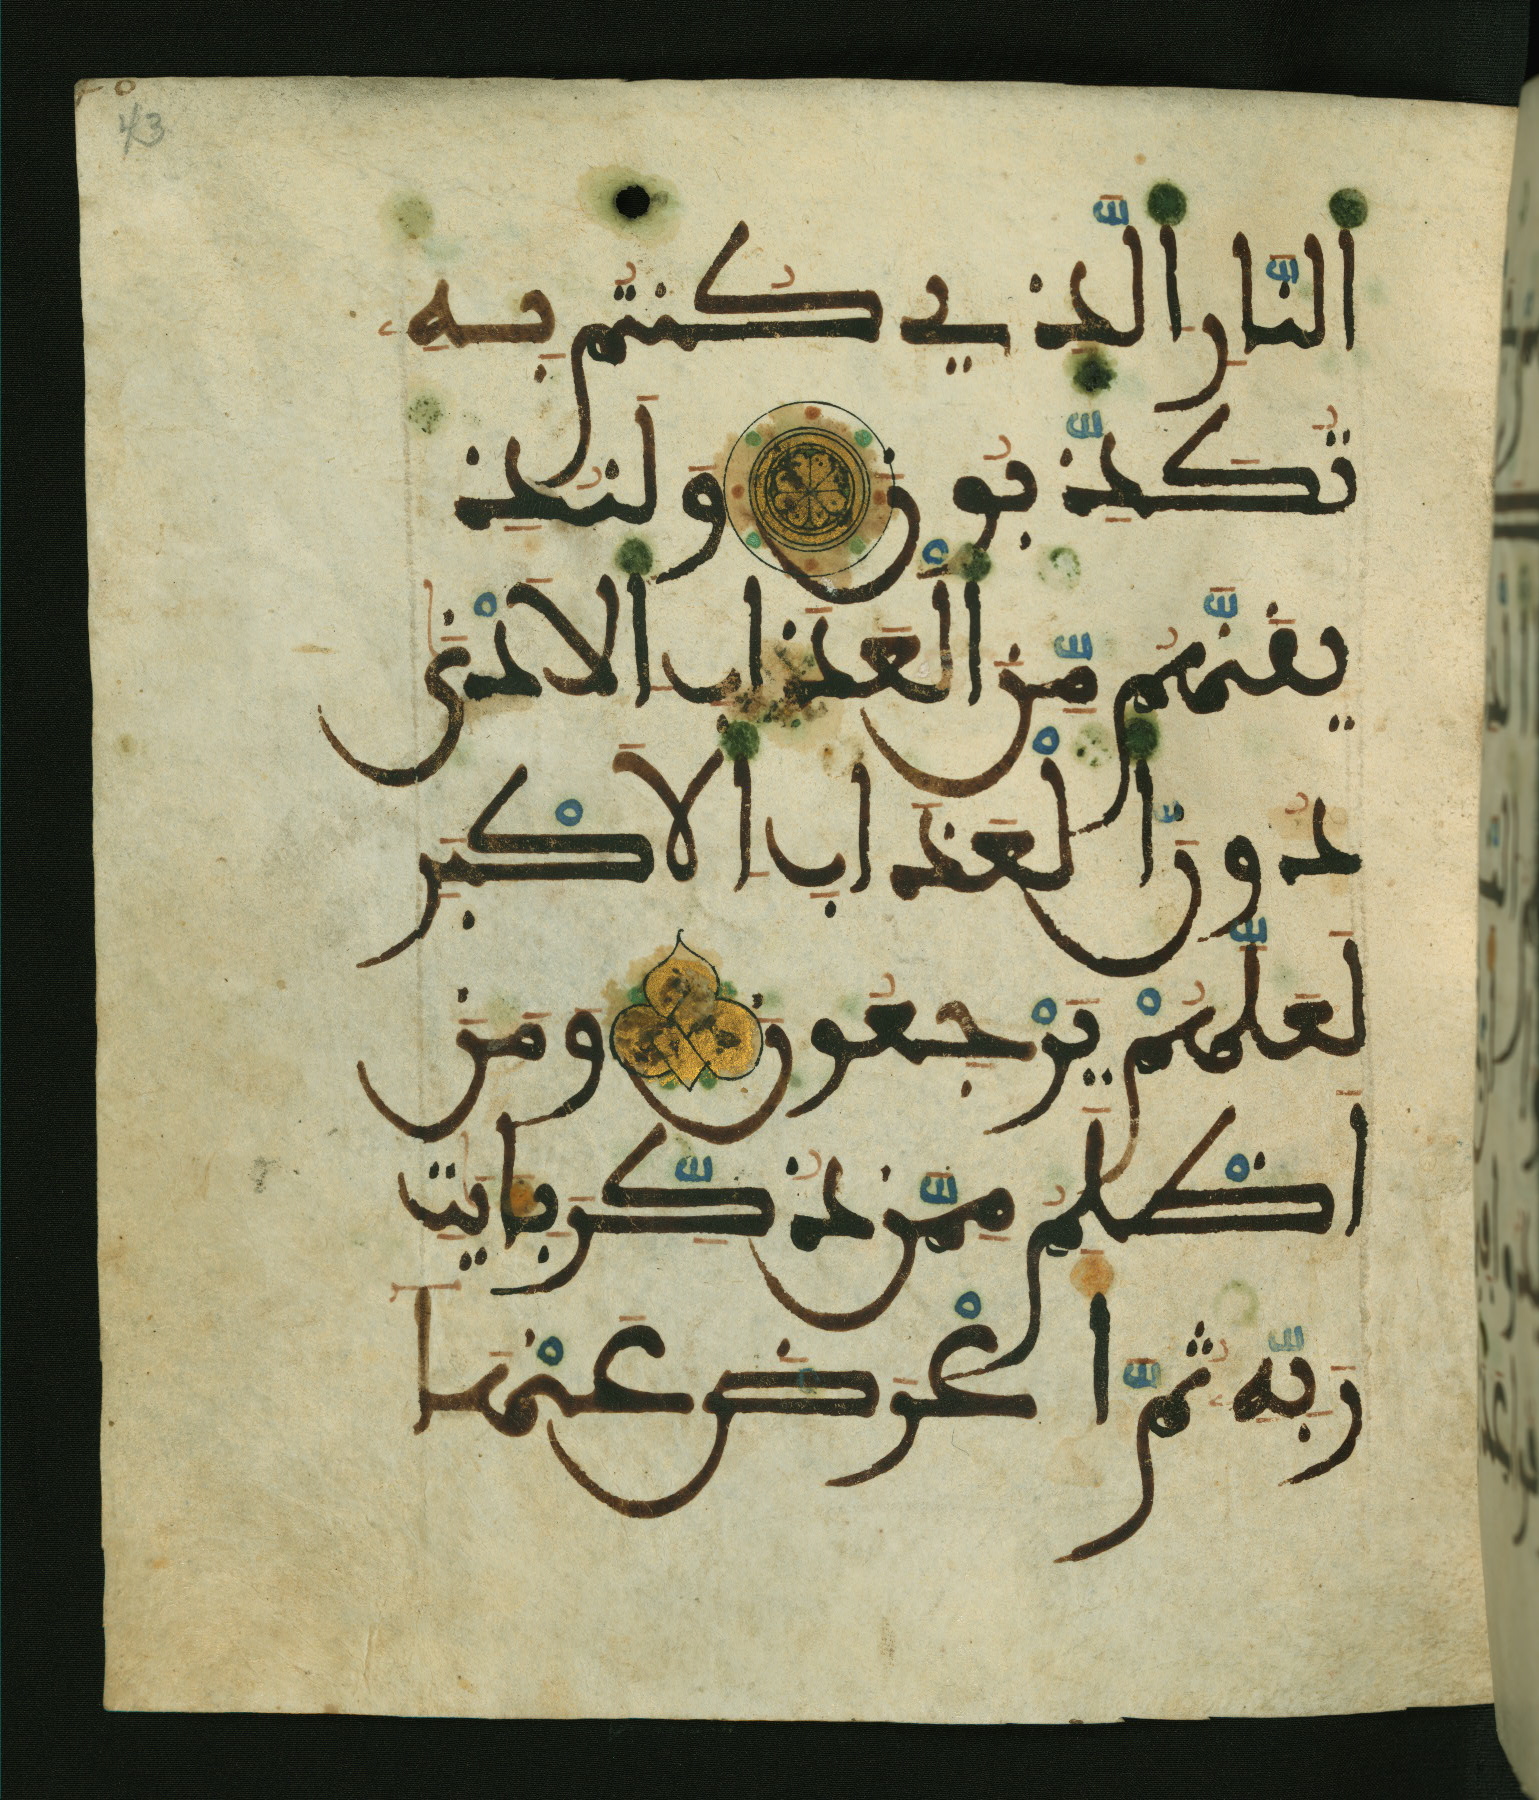 43
النَّارِ الَّذِي كُنتُم بِهِ
تُكَذِّبُونَ وَلَنُذِ
يقَنَّهُم مِّنَ الْعَذَابِ الْادْنَى
دُونَ الْعَذَابِ الَاكْبَرِ
لَعَلَّهُمْ يَرْجِعُونَ وَمَنَ
اظْلَمُ مِمَّن ذُكِّرَ بِـَٔايَٰتِ
رَبِّهِ ثُمَّ أَعْرَضَ عَنْهَا